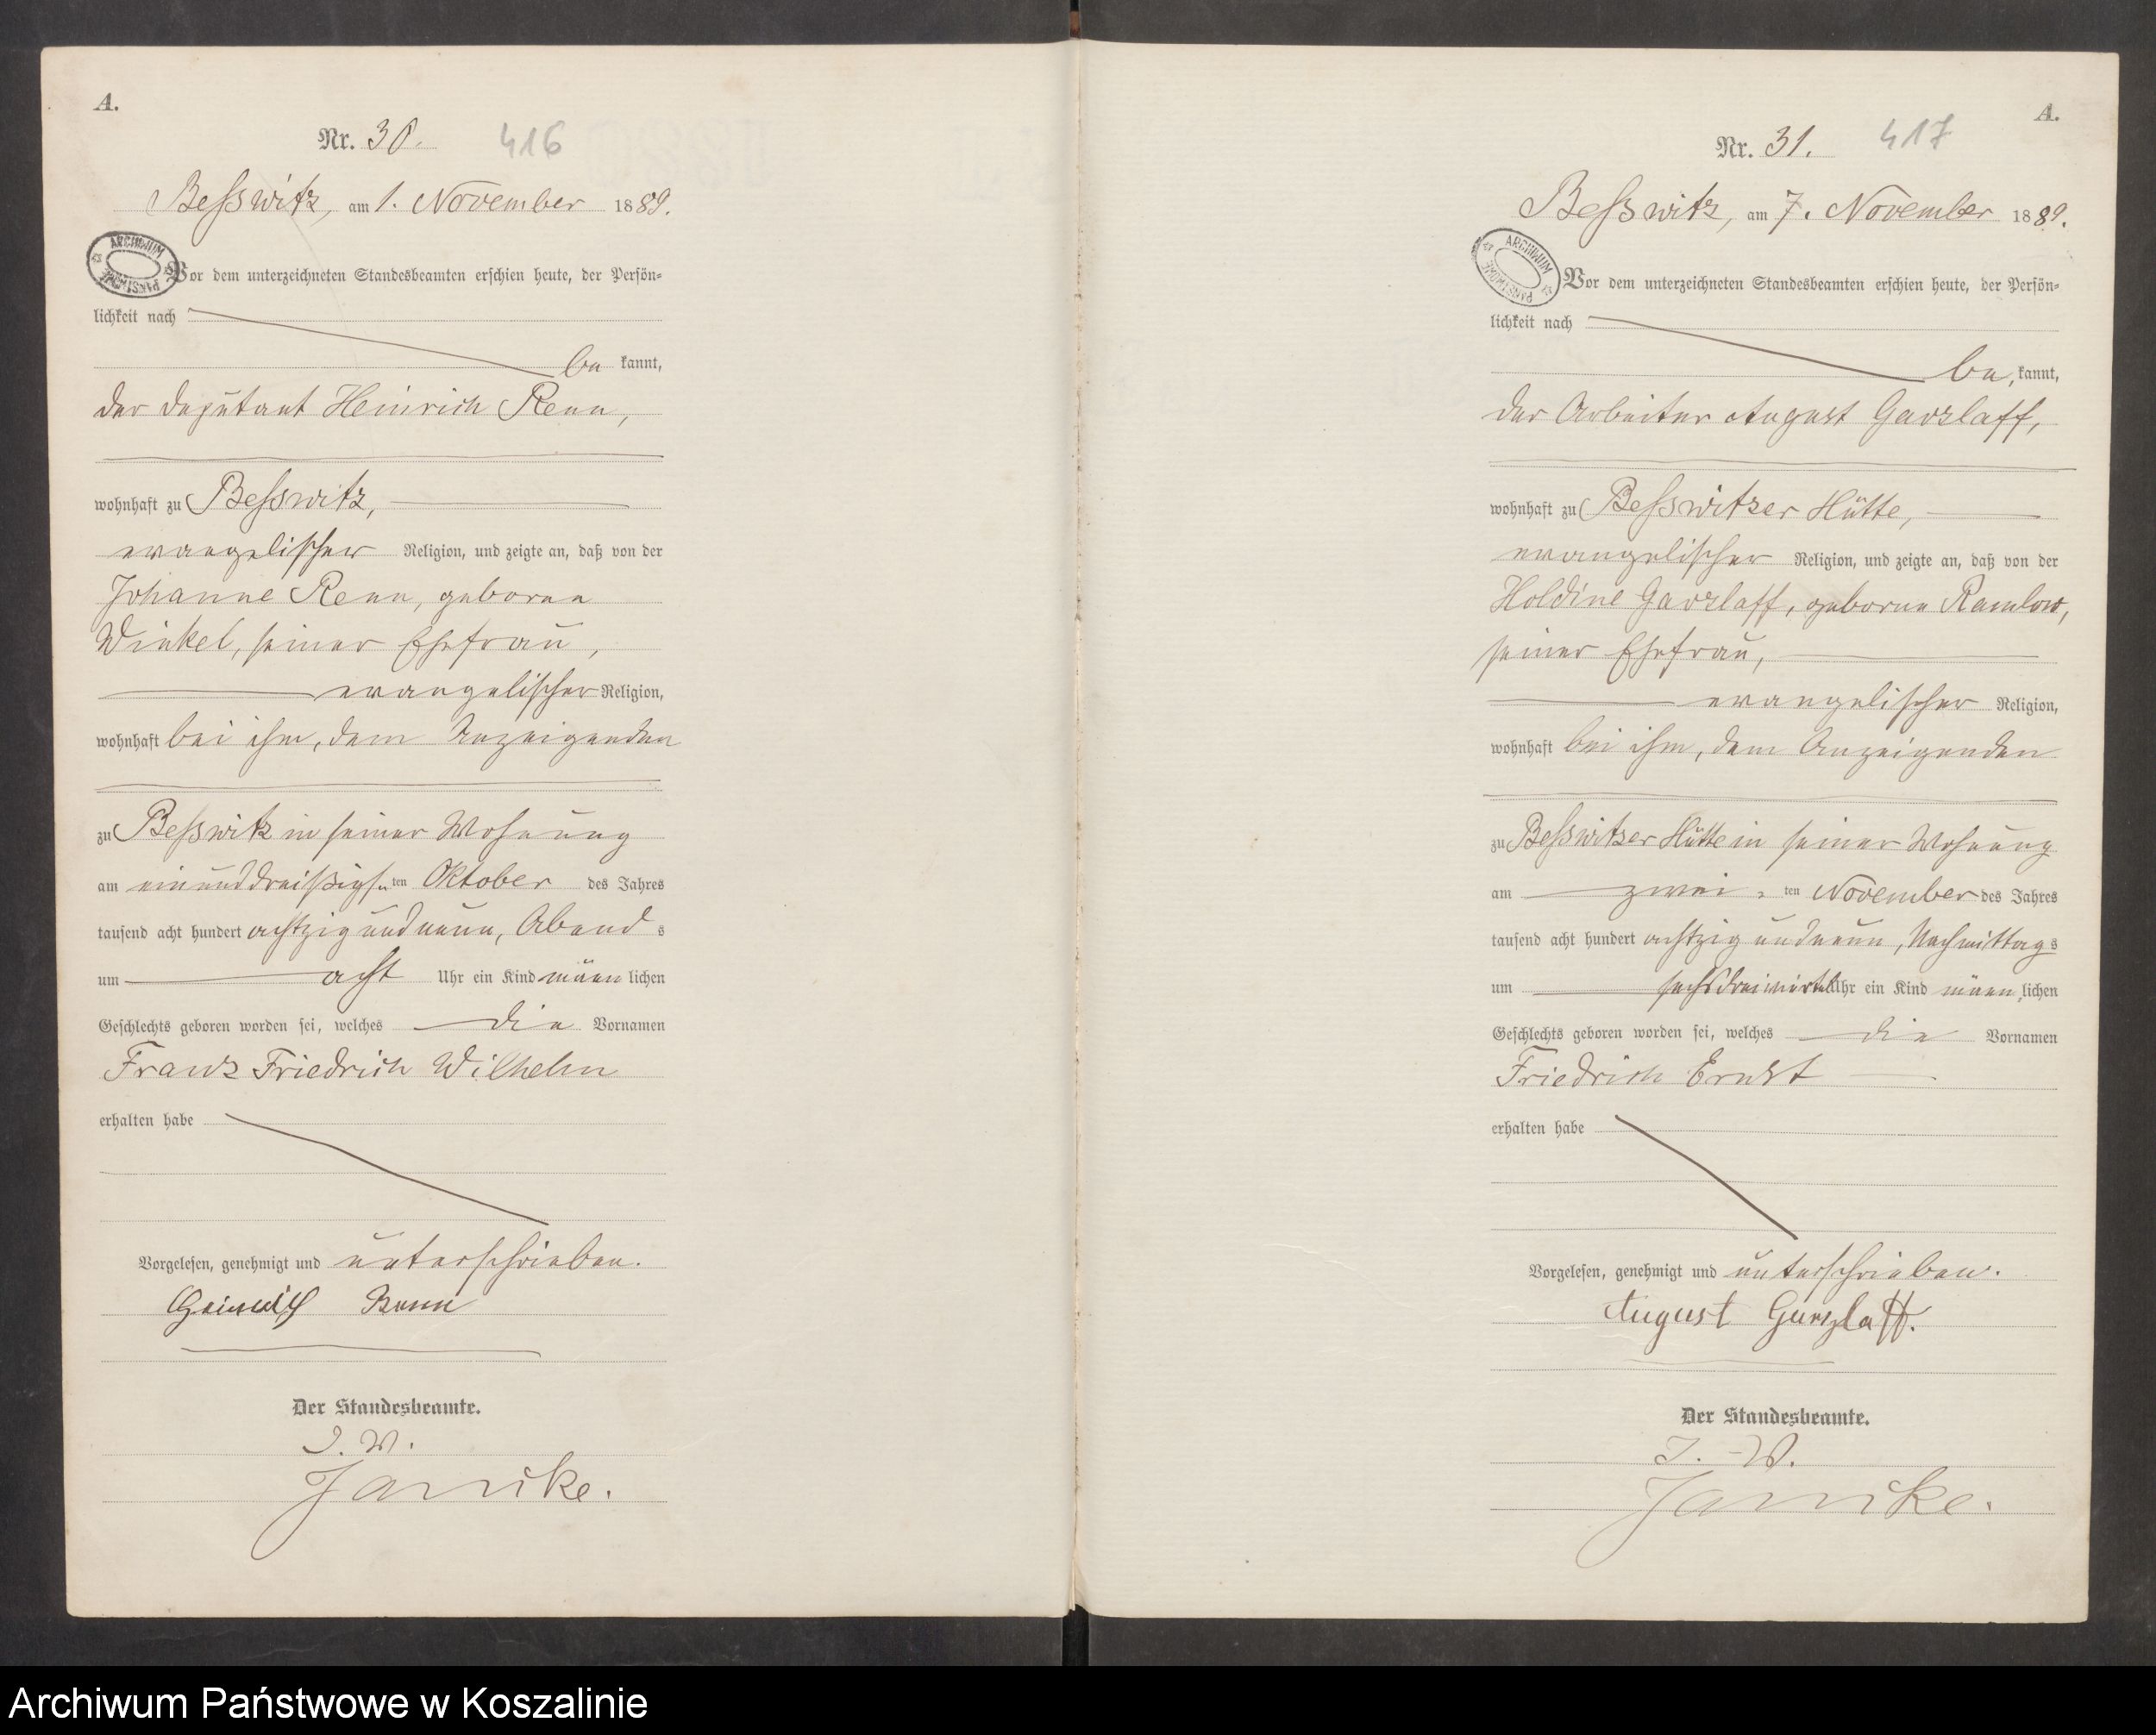 A.
Nr. 30. 416
Beßwitz, am 1. November 1889.
ARCHIWUM PAŃSTWOWE
Vor dem unterzeichneten Standesbeamten erschien heute, der Persön-
lichkeit nach
be kannt,
der Deputant Heinrich Renn,
wohnhaft zu Beßwitz,
evangelischer Religion, und zeigte an, daß von der
Johanne Renn, geborne
Winkel, seiner Ehefrau,
evangelischer Religion,
wohnhaft bei ihm, dem Anzeigenden
zu Beßwitz in seiner Wohnung
am einunddreißigsten Oktober des Jahres
tausend acht hundert achtzig und neun, Abends
um acht Uhr ein Kind männlichen
Geschlechts geboren worden sei, welches die Vornamen
Franz Friedrich Wilhelm
erhalten habe
Vorgelesen, genehmigt und unterschrieben.
Heinrich Renn
Der Standesbeamte.
I. V.
Janike.
A.
Nr. 31. 417
Beßwitz, am 7. November 1889.
ARCHIWUM PAŃSTWOWE
Vor dem unterzeichneten Standesbeamten erschien heute, der Persön-
lichkeit nach
be kannt,
der Arbeiter August Garzlaff,
wohnhaft zu Beßwitzer Hütte,
evangelischer Religion, und zeigte an, daß von der
Holdine Garzlaff, geborne Ramlow,
seiner Ehefrau,
evangelischer Religion,
wohnhaft bei ihm, dem Anzeigenden
zu Beßwitzer Hütte in seiner Wohnung
am zwei-ten November des Jahres
tausend acht hundert achtzig und neun, Nachmittags
um sechs dreiviertel Uhr ein Kind männlichen
Geschlechts geboren worden sei, welches die Vornamen
Friedrich Ernst
erhalten habe
Vorgelesen, genehmigt und unterschrieben.
August Garzlaff.
Der Standesbeamte.
I. V.
Janike.
Archiwum Państwowe w Koszalinie